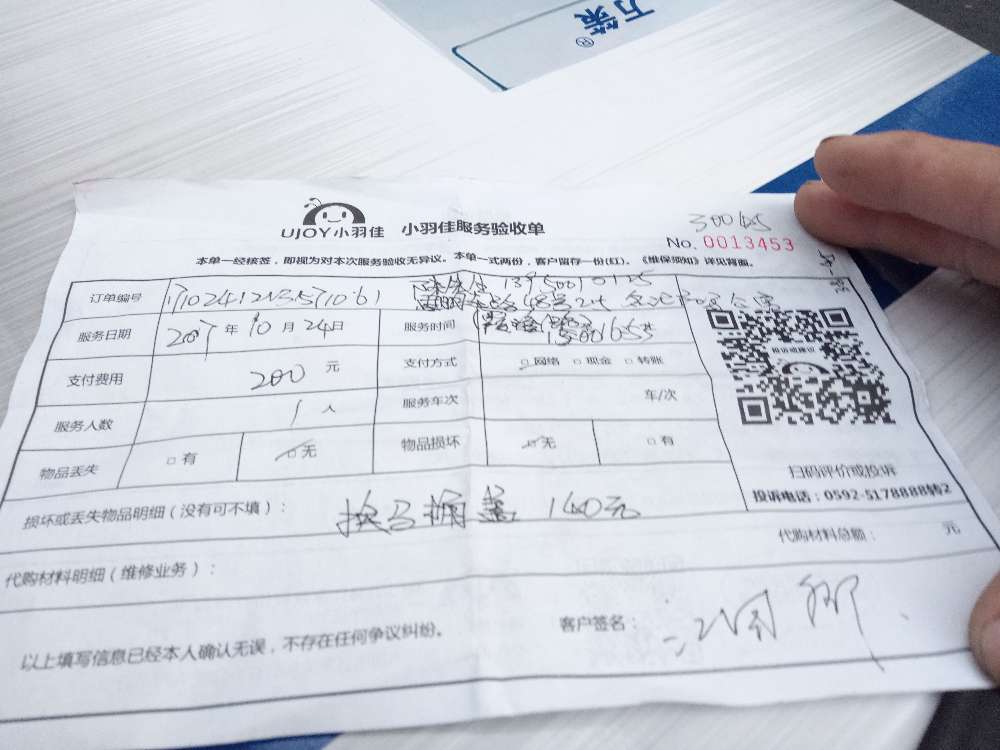 万策®
UJOY小羽佳 小羽佳服务验收单
No. 0013453
本单一经核签，即视为对本次服务验收无异议。本单一式两份，客户留存一份(红)。《维保须知》详见背面。
订单编号
服务日期 2017年10月24日 服务时间
支付费用 200 元 支付方式 □网络 □现金 □转账
服务人数 1人 服务车次 车/次
物品丢失 □有 □无 物品损坏 □无 □有
扫码评价或投诉
投诉电话：0592-5178888转2
损坏或丢失物品明细（没有可不填）： 换马桶盖 140元
代购材料总额： 元
代购材料明细（维修业务）：
以上填写信息已经本人确认无误，不存在任何争议纠纷。 客户签名：